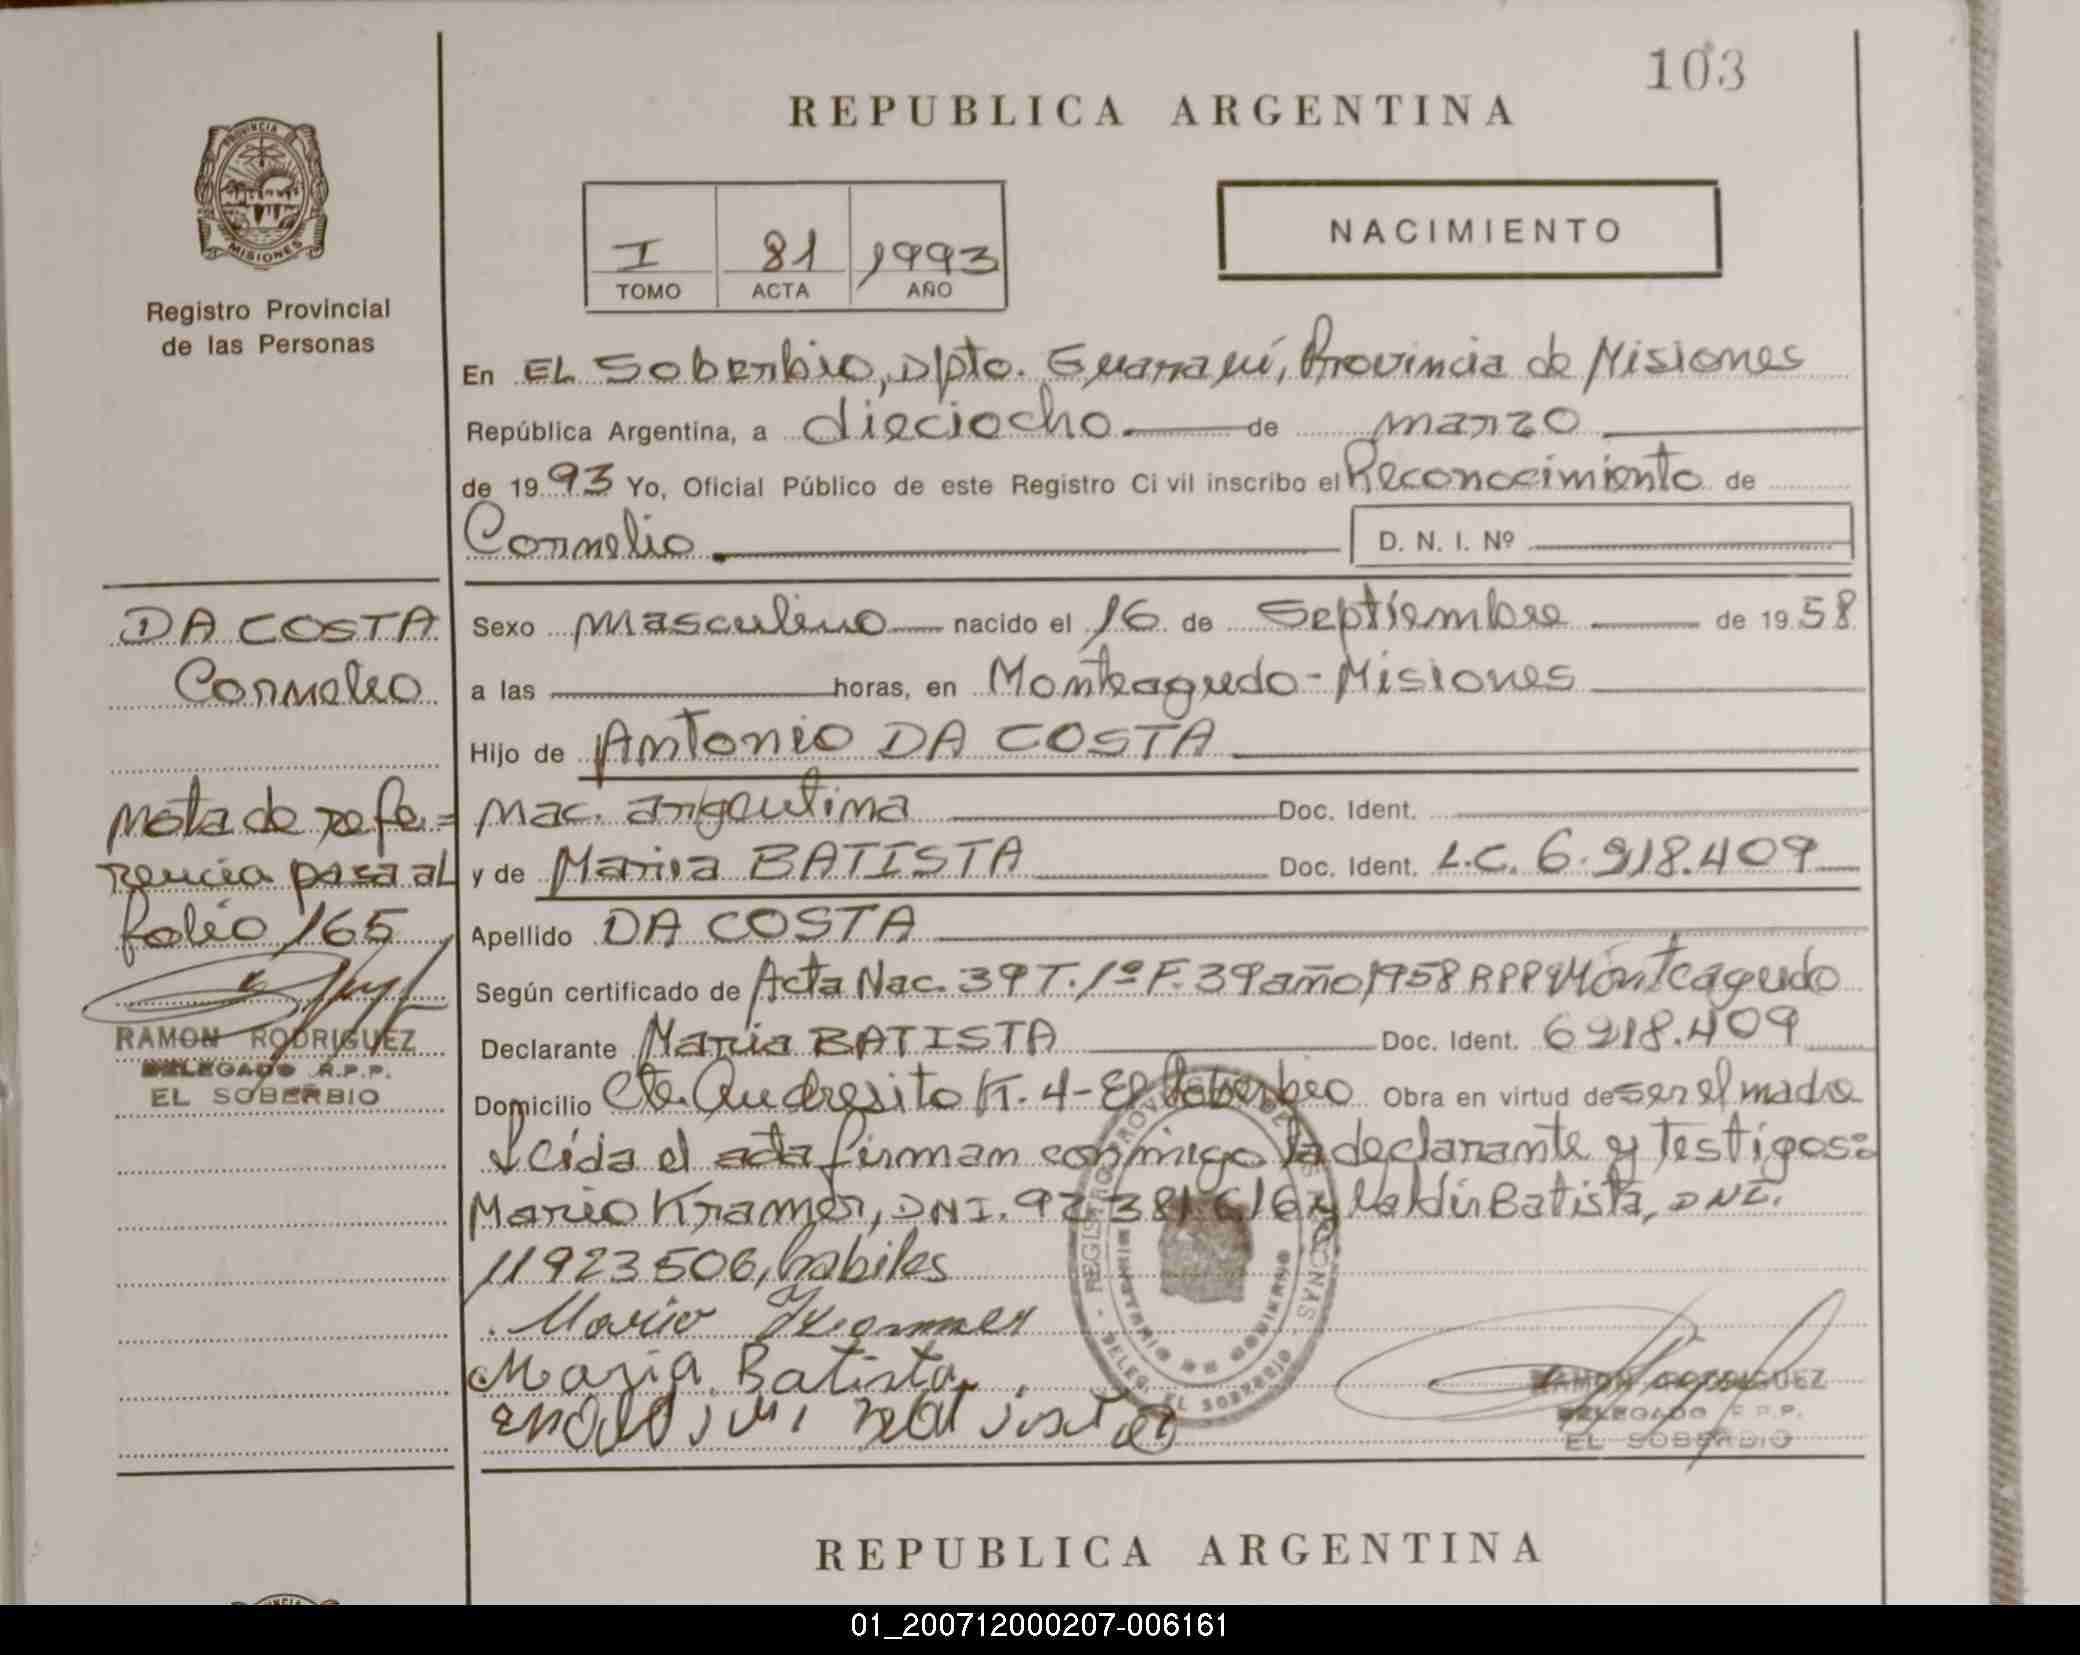 103
REPUBLICA ARGENTINA
PROVINCIA
MISIONES
Registro Provincial
de las Personas
I 81 1993
TOMO ACTA AÑO
NACIMIENTO
En EL Soberbio, Dpto. Guaraní, Provincia de Misiones
República Argentina, a dieciocho de marzo
de 1993 Yo, Oficial Público de este Registro Civil inscribo el Reconocimiento de
Cornelio D. N. I. Nº
DA COSTA
Cornelio
Sexo masculino nacido el 16 de Septiembre de 1958
a las horas, en Monteagudo-Misiones
Hijo de Antonio DA COSTA
nac. argentina Doc. Ident.
y de Maria BATISTA Doc. Ident. L.C. 6.918.409
Apellido DA COSTA
Según certificado de Acta Nac. 39 T. 1º F. 39 año 1958 RPP Monteagudo
Declarante Maria BATISTA Doc. Ident. 6918.409
Domicilio Cte. Andresito K. 4-El Soberbio Obra en virtud de ser el madre
Leída el acta firman conmigo la declarante y testigos:
Mario Kramer, DNI. 92 381 616 y Valdir Batista, DNI.
11923506, habiles
Mario Kramer
Maria Batista
nota de refe=
rencia pasa al
folio 165
RAMON RODRIGUEZ
DELEGADO R.P.P.
EL SOBERBIO
RAMON RODRIGUEZ
DELEGADO R.P.P.
EL SOBERBIO
REPUBLICA ARGENTINA
01_200712000207-006161